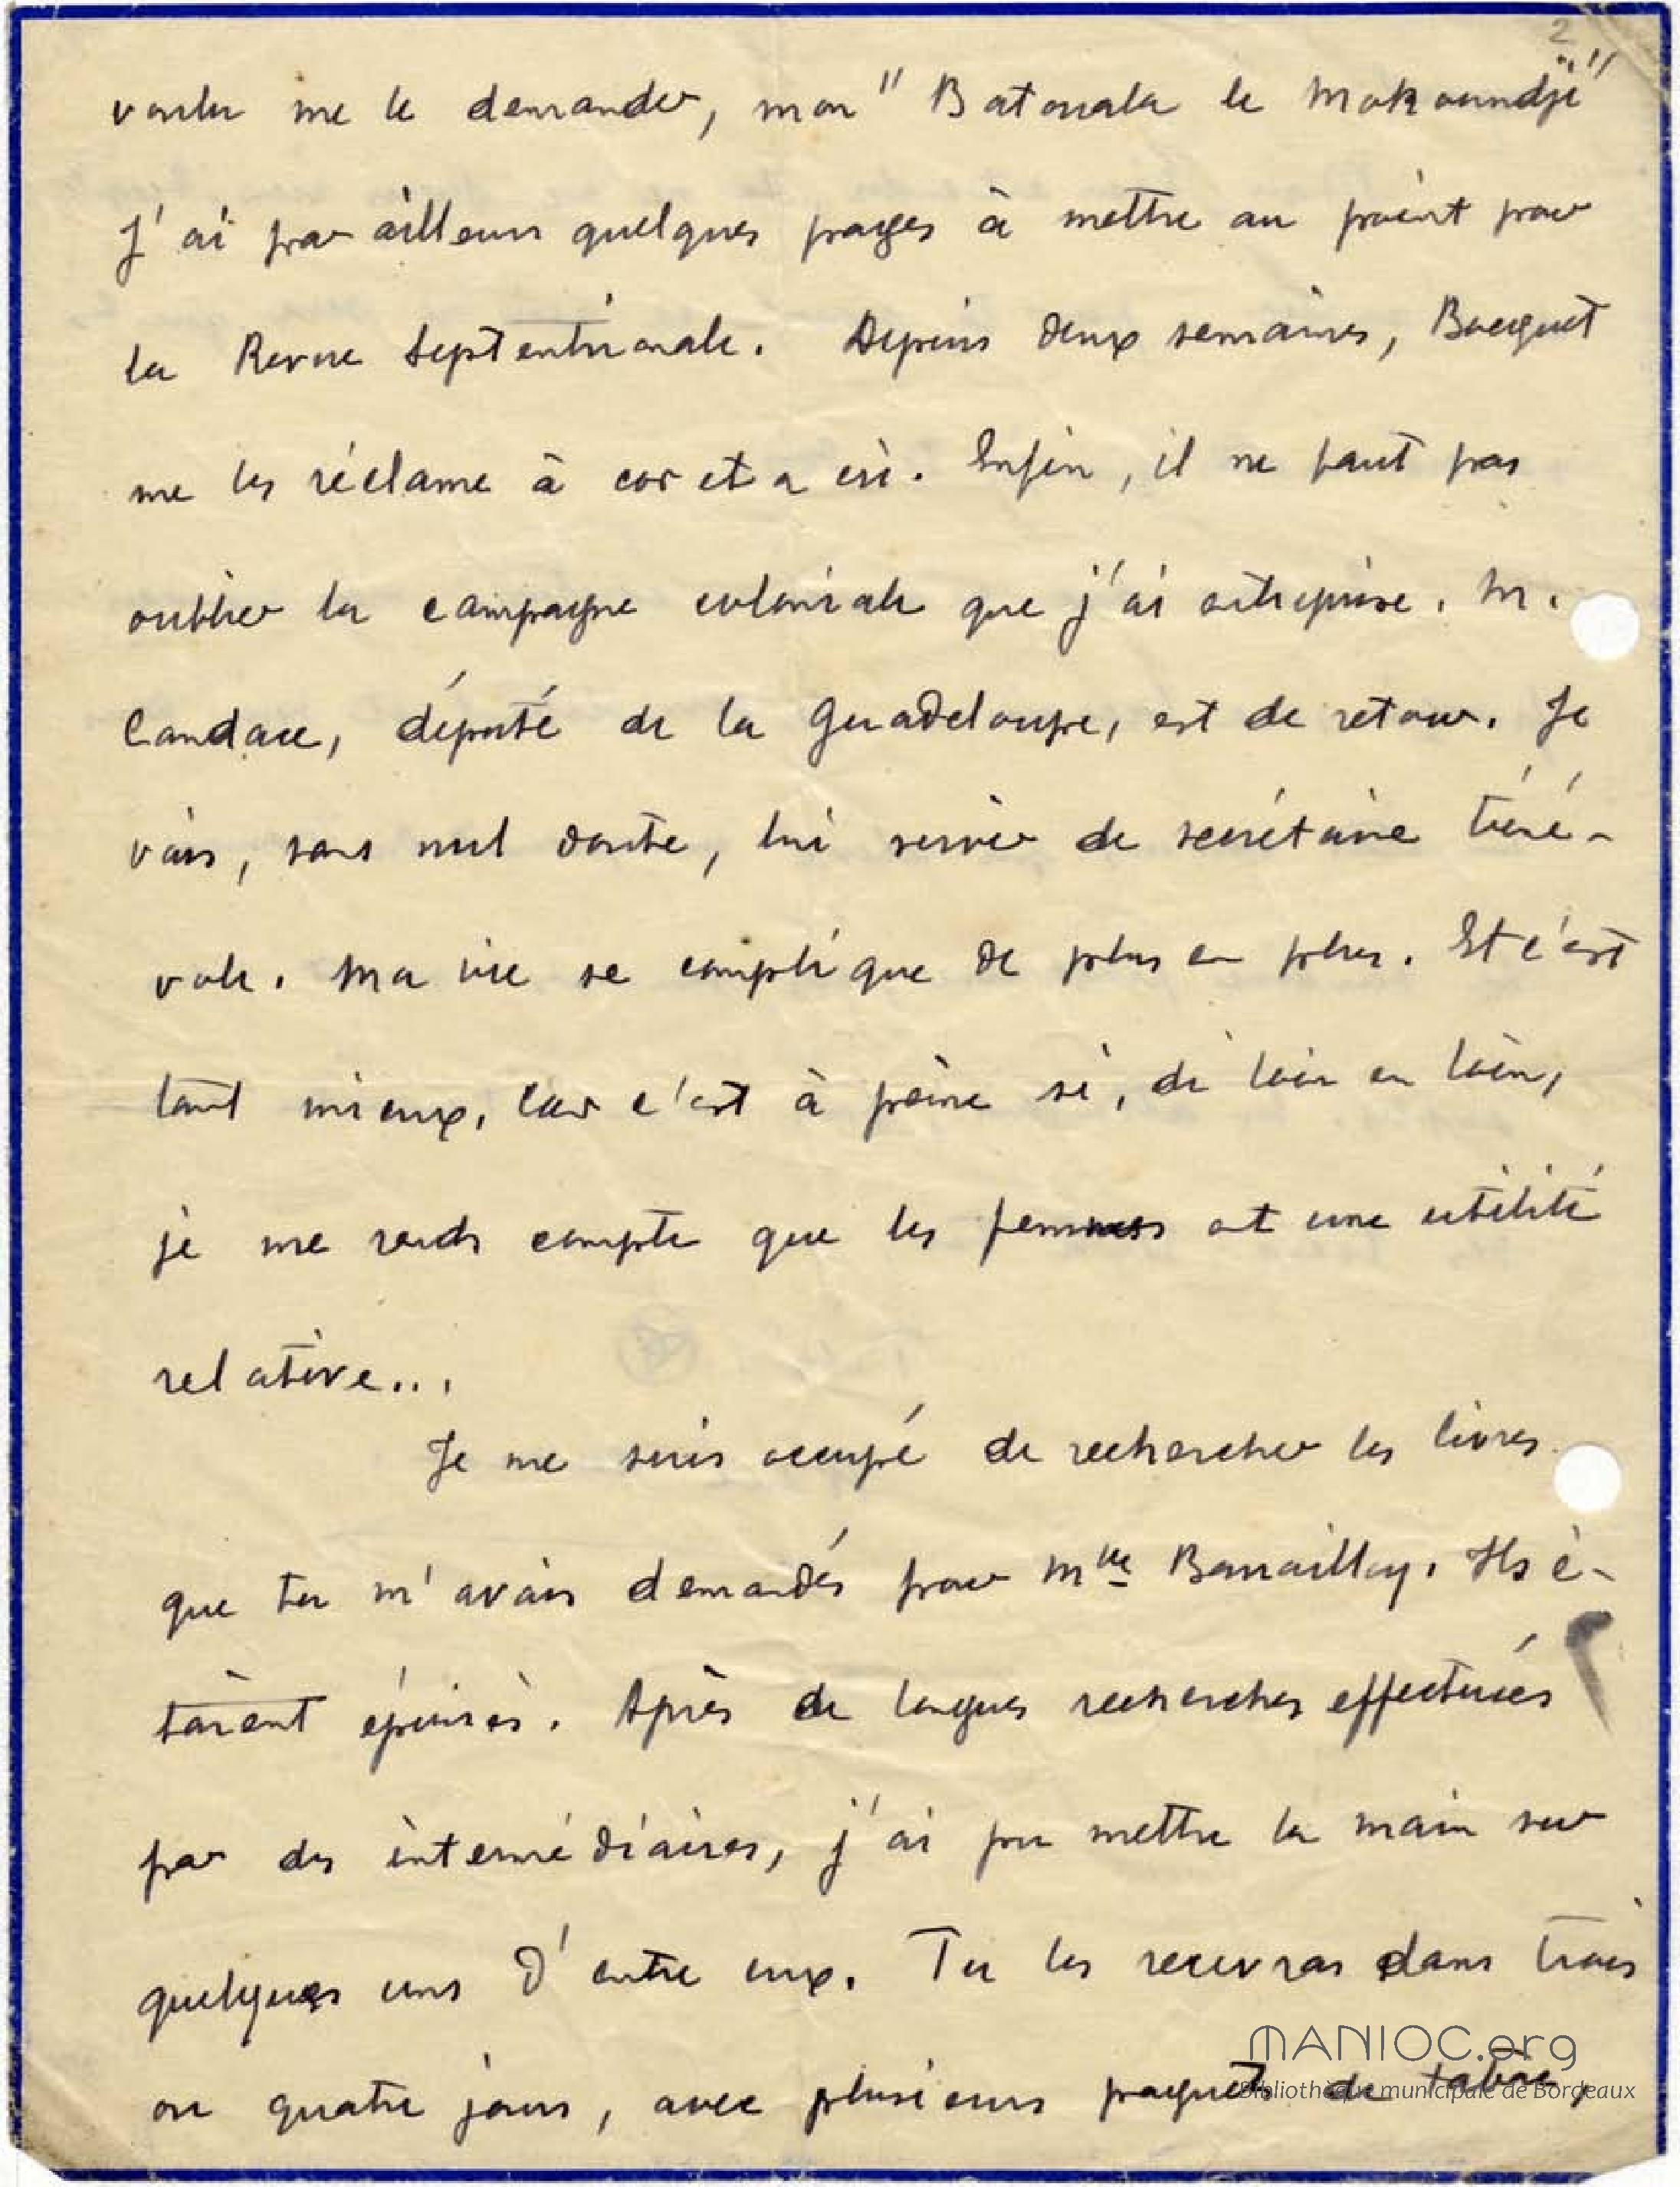 2
voulu me le demander, mon "Batouala le Mokoundji"
J'ai par ailleurs quelques pages à mettre au point pour
la Revue Septentrionale. Depuis deux semaines, Bocquet
me les réclame à cor et a cri. Enfin, il ne faut pas
oublier la campagne coloniale que j'ai entreprise. M.
Candace, député de la Guadeloupe, est de retour. Je
vais, sans nul doute, lui servir de secrétaire béné-
vole. Ma vie se complique de plus en plus. Et c'est
tant mieux. Car c'est à peine si, de loin en loin,
je me rends compte que les femmes ont une utilité
relative...
Je me suis occupé de rechercher les livres
que tu m'avais demandés pour Mlle Barrailley. Ils é-
taient épuisés. Après de longues recherches effectuées
par des intermédiaires, j'ai pu mettre la main sur
quelques uns d'entre eux. Tu les recevras dans trois
ou quatre jours, avec plusieurs paquets de tabac,
MANIOC.org
Bibliothèque municipale de Bordeaux